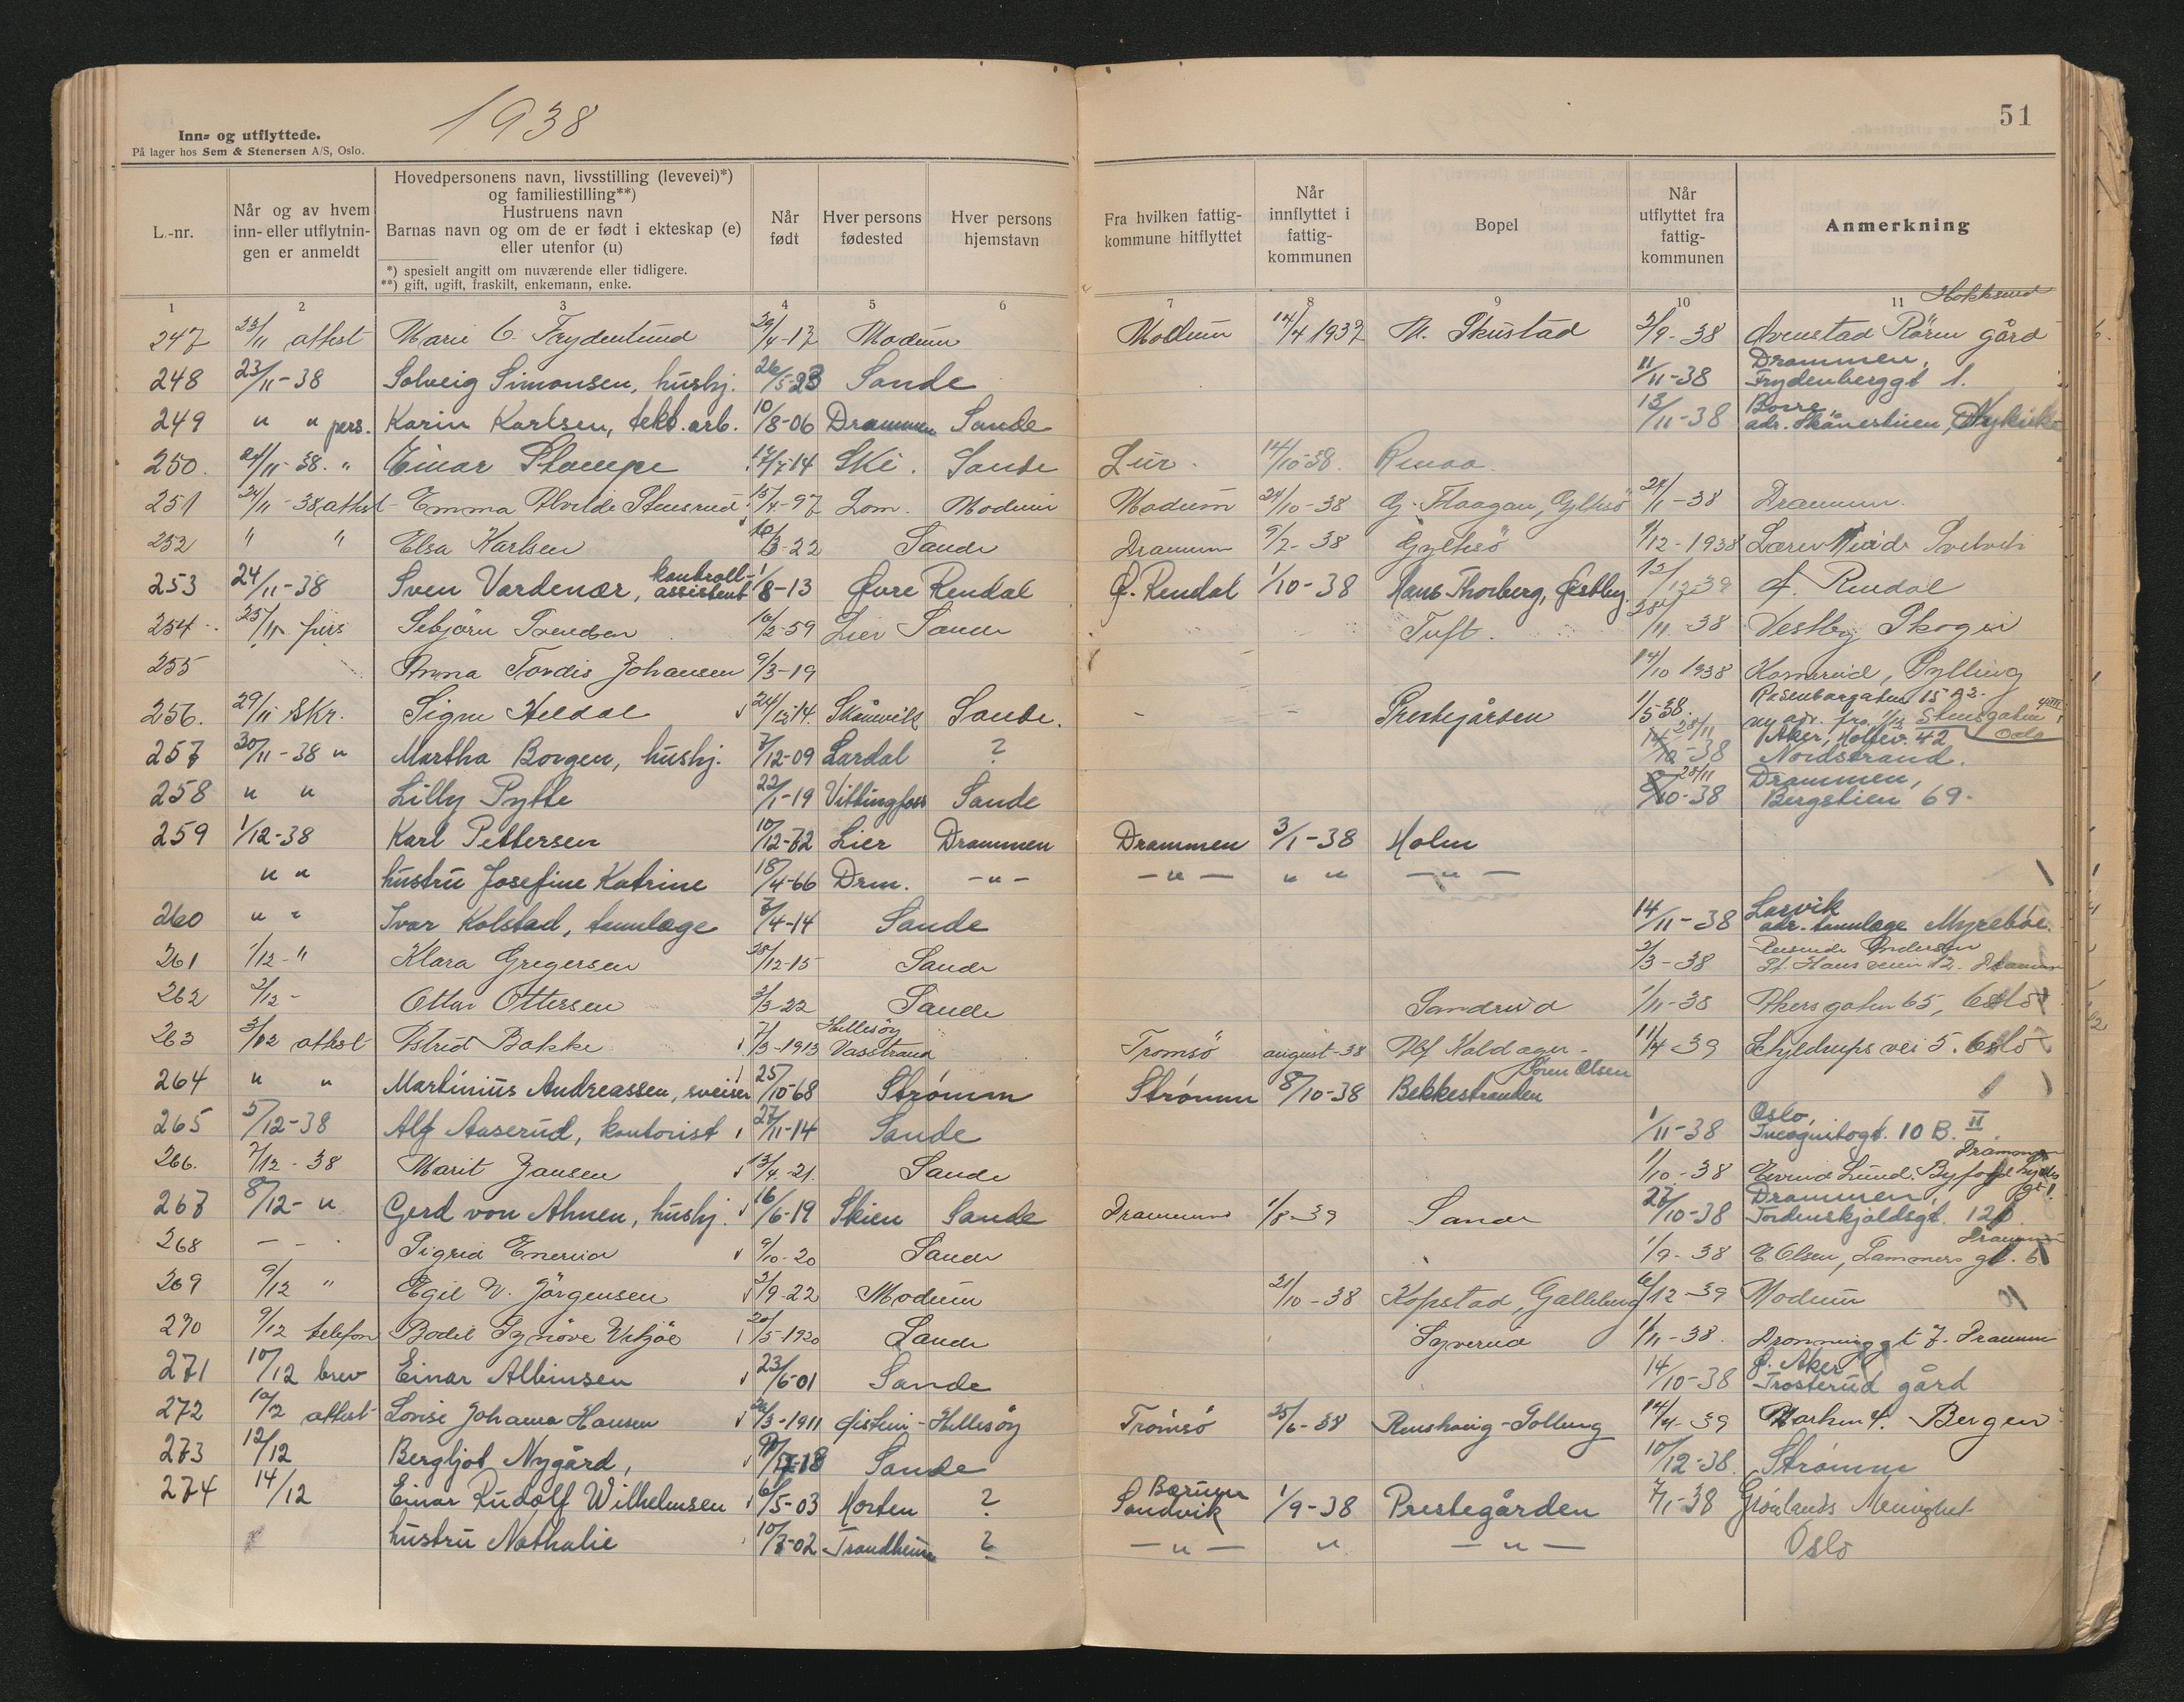 1938
51
Inn- og utflyttede.
På lager hos Sem & Stenersen A/S, Oslo.
L.-nr.
Når og av hvem inn- eller utflytningen er anmeldt
Hovedpersonens navn, livsstilling (levevei)*) og familiestilling**)
Hustruens navn
Barnas navn og om de er født i ekteskap (e) eller utenfor (u)
*) spesielt angitt om nuværende eller tidligere.
**) gift, ugift, fraskilt, enkemann, enke.
Når født
Hver persons fødested
Hver persons hjemstavn
Fra hvilken fattigkommune hitflyttet
Når innflyttet i fattigkommunen
Bopel
Når utflyttet fra fattigkommunen
Anmerkning
1 2 3 4 5 6 7 8 9 10 11
Hokksund
247 23/11 attest Marie C. Frydenlund 29/4-17 Modum Modum 14/4 1937 N. Skustad 2/9-38 gård
248 23/11-38 Solveig Simonsen, hushj. 26/5-23 Sande 11/11-38 Drammen, Frydenberggt 1.
249 " " pers. Karin Karlsen, tekt. arb. 10/8-06 Drammen Sande 13/11-38 Borre adr. Skånestuen, Nykirke
250. 24/11-38. " Einar Stampe 17/7-14 Ski. Sande Lier. 14/10-38.
251 24/11-38 attest Emma Alvilde Stensrud 15/4-97 Lom. Modum Modum 24/10-38 G. Haagan, Gylhsö 24/11-38 Drammen.
252 " " Elsa Karlsen 16/3-22 Sande Drammen 9/2-38 Gylhsö 1/12-1938 Svelvik
253 24/11-38 Sven Vardenær, kontroll-assistent 1/8-13 Øvre Rendal Ø. Rendal 1/10-38 Hans Thorberg, Østby. 13/12 39 Ø. Rendal
254 25/11 pers Sebjørn Svendsen 16/2-59 Lier Sande Tuft. 11-38 Vestby Skoger
255 Anna Tordis Johansen 9/3-19 14/10 1938 Komnerud, Sylling
256. 29/11 Skr. Signe Heldal 24/12-14. Skånevik Sande. - Prestegården 1/5 38. Rosenborgaten 15 A 3. ny adr. fra 1/12 Stensgaten Oslo
257 30/11-38 " Martha Borgen, hushj. 7/12-09 Lardal ? 28/11 -38 Aker, Holtev. 42 Nordstrand.
258 " " Lilly Pytte 22/1-19 Vittingfoss Sande 28/11 10-38 Drammen, Bergstien 69.
259 1/12-38 Karl Pettersen 10/12-72 Lier Drammen Drammen 3/1-38 Holm
" " hustru Josefine Katrine 18/4-66 Drm. -"- -"- " " -"-
260 " " Ivar Kolstad, tannlæge 7/4-14 Sande 14/11-38 Larvik adr. tannlæge Myrebøe.
261 1/12-" Klara Gregersen 28/12-15 Sande 2/3-38 Andersen St. Hans veien 12. Drammen
262 2/12- Ottar Ottersen 3/3-22 Sande Sandrud 1/11-38 Akersgaten 65, Oslo
263 3/12 attest Astrid Bakke 7/3-1913 Hillesöy Vasstrand Tromsö august-38 Alf Kaldager 11/4-39 Schjeldrups vei 5. Oslo
264 " " Martinius Andreassen, sveiser 25/10-68 Strømm Strømm 8/10-38 Sören Olsen Bekkestranden
265 5/12-38 Alf Aaserud, kontorist 27/11-14 Sande 1/11-38 Oslo, Incognitogt. 10 B. II.
266. 7/12-38 Marit Jansen 13/4-21. Sande 1/10-38 Lund. Drammen
267 8/12-" Gerd von Ahnen, hushj. 16/6-19 Skien Sande Drammen 1/8-39 Sande 27/10-38 Drammen, Tordenskjoldsgt.
268 - - Sigrid Enerud 9/10-20 Sande 1/9-38 E Olsen, Lammers gt. 6 Drammen
269 9/12 " Egil N. Jörgensen 3/9-22 Modum 21/10-38 Kopstad, Galleberg 6/12-39 Modum
270 9/12 telefon Bodil Synöve 20/5-1920 Sande Syverud 1/11-38. Dronninggt 7. Dramm
271 10/12 brev Einar Albinsen 23/6-01 Sande 14/10-38 Ø. Aker Trosterud gård
272 10/12 attest Lovise Johanna Hansen 26/3-1911 Hillesöy Tromsö 25/6-38 Renskaug-Solberg 14/4-39 Marken 4. Bergen
273 12/12 Bergljot Nygård, -18 Sande 10/12-38. Strømm
274 14/12 Einar Rudolf Wilhelmsen 6/5-03 Horten ? Bærum Sandvik 1/9-38 Prestegården 7/1-38 Grønlands Menighet
hustru Nathalie 10/7-02 Trondheim ? -"- " -"- Oslo